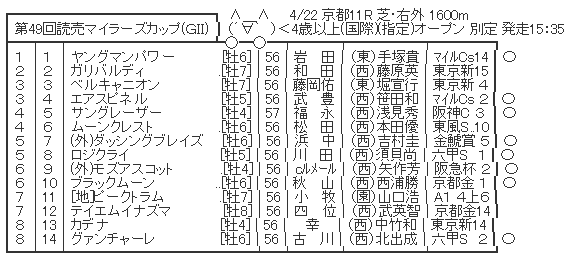 第49回読売マイラーズカップ(GII) ∧＿∧ 4/22 京都11R 芝・右外 1600m
( ´∀｀)＜4歳以上(国際)(指定)オープン 別定 発走15:35
1 1 ヤングマンパワー [牡6] 56 岩田 (東)手塚貴 マイルCs14 ○
2 2 ガリバルディ ..[牡7] 56 和田 (西)藤原英 東京新15
3 3 ベルキャニオン [牡7] 56 藤岡佑 (東)堀宣行 東京新 4
3 4 エアスピネル ..[牡5] 56 武豊 (西)笹田和 マイルCs 2 ○
4 5 サングレーザー [牡4] 57 福永 (西)浅見秀 阪神C 3 ○
4 6 ムーンクレスト ..[牡6] 56 松田 (西)本田優 東風S..10
5 7 (外)ダッシングブレイズ [牡6] 56 浜中 (西)吉村圭 金鯱賞 5 ○
5 8 ロジクライ [牡5] 56 川田 (西)須貝尚 六甲S 1 ○
6 9 (外)モズアスコット ..[牡4] 56 ルメール (西)矢作芳 阪急杯 2 ○
6 10 ブラックムーン ..[牡6] 56 秋山 (西)西浦勝 京都金 1 ○
7 11 [地]ビークトラム ..[牡7] 56 小牧 (園)山口浩 A1 4上6
7 12 テイエムイナズマ [牡8] 56 四位 (西)武英智 京都金14
8 13 カデナ [牡4] 56 幸 (西)中竹和 東京新14
8 14 グァンチャーレ [牡6] 56 古川 (西)北出成 六甲S 2 ○